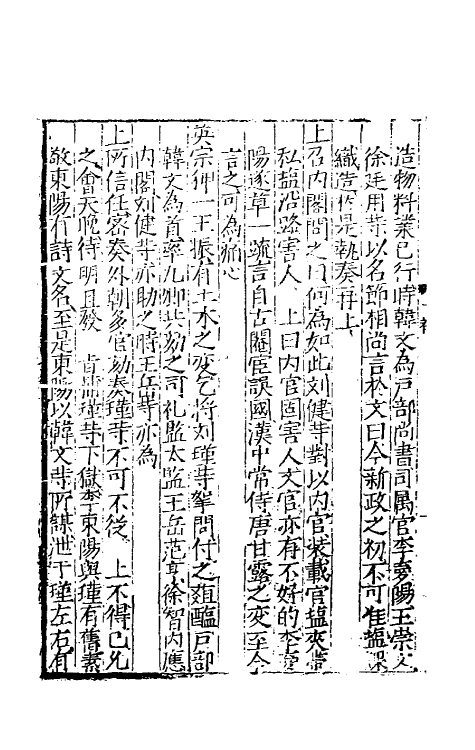 造物料業已行時韓文為戸部尚書司属官李夢陽王崇文
徐廷用等以名節相尚言於文曰今新政之初不可准鹽課
織造於是執奏再上
上召内閣問之曰何為如此刘健等對以内官裝載官塩夾帶
私塩沿路害人　上曰内官固害人文官亦有不好的李夢
陽遂草一疏言自古閹宦誤國漢中常侍唐甘露之变至今
言之可為寒心
英宗狎一王振有土木之变乞将刘瑾等拏問付之葅醢戸部
韓文為首率九卿共劾之司礼監太監王岳范亨徐智内應
内閣刘健等亦助之時王岳等亦為
上所信任密奏外朝多官劾奏瑾等不可不従　上不得已允
之會天晚待明旦發　肯㨗瑾等下獄李東陽與瑾有舊素
敬東陽有詩文名至是東陽以韓文等所謀泄于瑾左右有